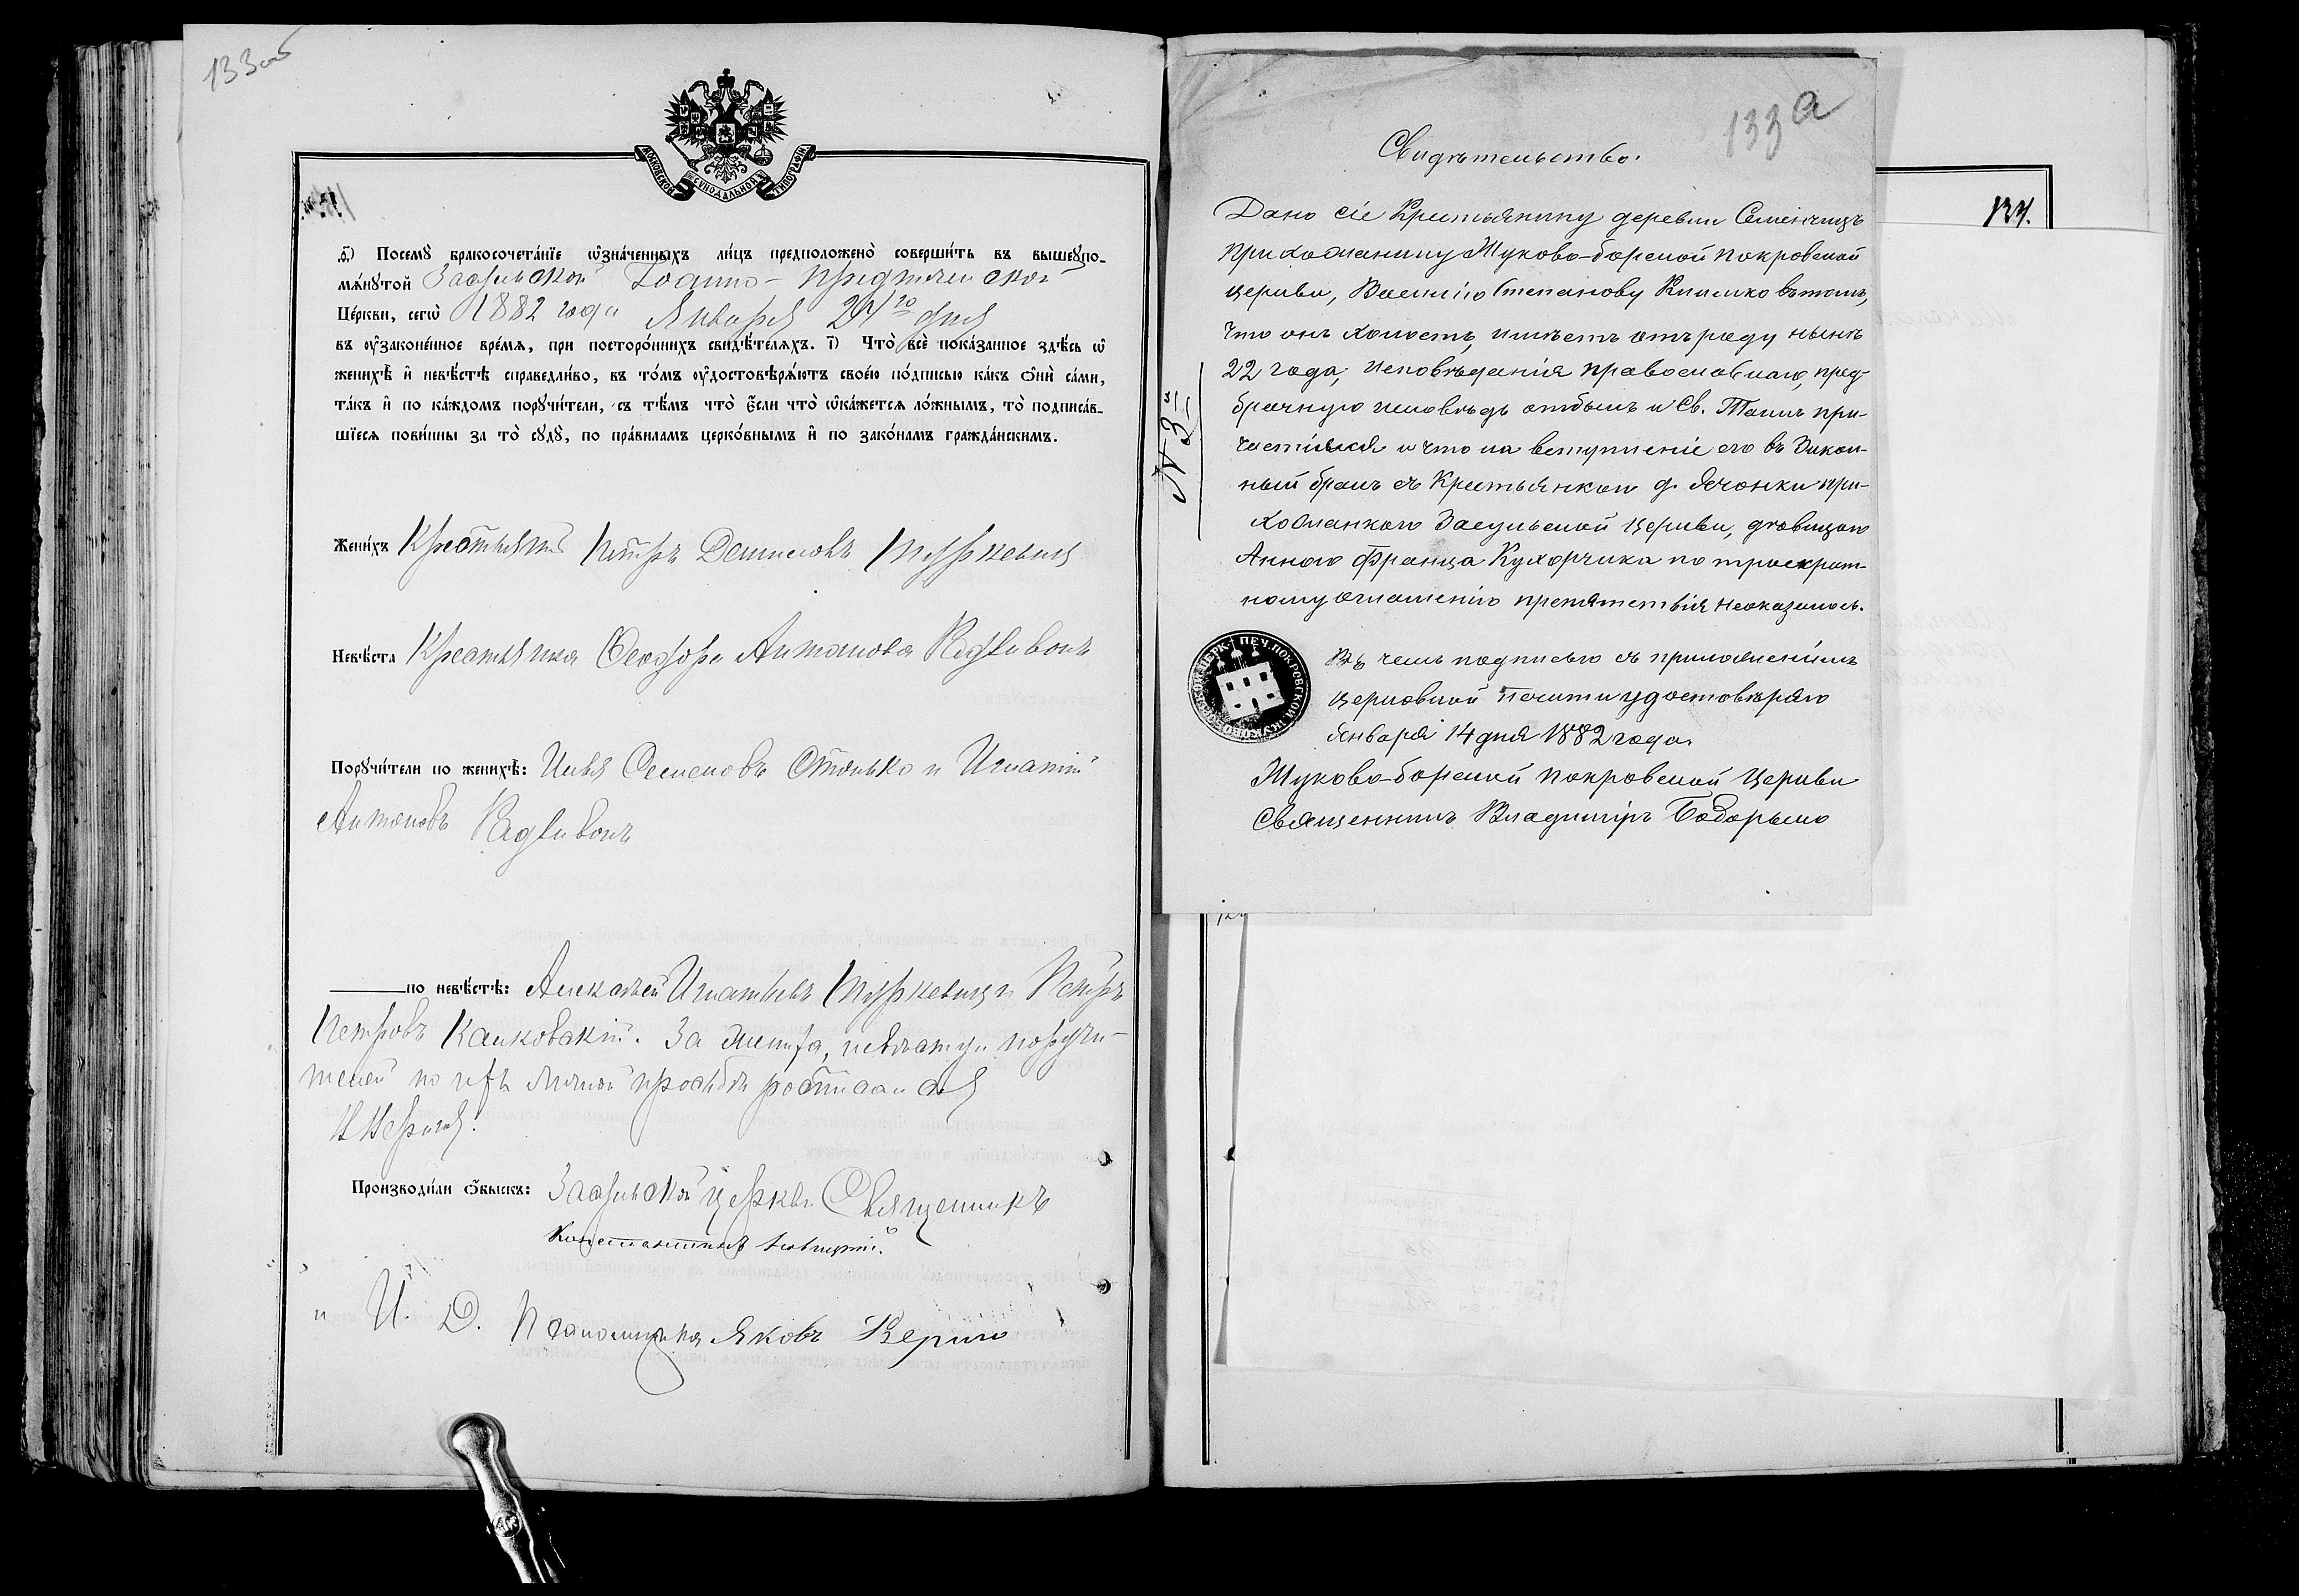 133об
МОСКОВСКОЙ СѴНОДАЛЬНОЙ ТИПОГРАФІИ
д҃) Посемꙋ̀ бракосочета́нїе ѡ҆зна́ченныхъ ли́цъ предположено̀ соверши́ть въ вышеꙋпо-
мѧ́нꙋтой Засульской Іоанно-Предтеченской
Це́ркви, сегѡ̀ 1882 года Января 24го дня
въ ᲂу҆законе́нное вре́мѧ, при посторо́ннихъ свидѣ́телѧхъ. і҃) Что̀ всѐ пока́занное здѣ́сь ѡ҆
женихѣ̀ и҆ невѣ́стѣ справедли́во, въ то́мъ ᲂу҆достовѣрѧ́ютъ свое́ю по́дписью ка́къ ѻ҆нѝ са́ми,
та́къ и҆ по ка́ждомъ порꙋчи́тели, съ тѣ́мъ что̀ є҆́сли что̀ ѡ҆ка́жетсѧ ло́жнымъ, то̀ подписа́в-
шїесѧ пови́нны за то̀ сꙋдꙋ̀, по пра́виламъ церко́внымъ и҆ по зако́намъ гражда́нскимъ.
Жени́хъ Крестьянинъ Петръ Даниловъ
Невѣ́ста Крестьянка Ѳеодора Антонова
Порꙋчи́тели по женихѣ̀: Илья Семеновъ и Игнатій
Антоновъ
по невѣ́стѣ: Алексѣй Игнатьевъ и Петръ
Петровъ. За жениха, невѣсту и поручи-
телей по ихъ личной просьбѣ росписался
Производи́ли ѻ҆́быскъ: Засульской церкви Священникъ
Константинъ
и И. Д. Псаломщика Яковъ
133а
Свидѣтельство.
Дано сіе Крестьянину деревни Семенчицъ
прихожанину Жуково-борской Покровской
церкви, Василію Степанову Климко въ томъ,
что онъ холостъ, имѣетъ отъ роду нынѣ
22 года, исповѣданія православнаго, пред-
брачную исповѣдь отбылъ и Св. Таинъ при-
частился и что на вступленіе его въ Закон-
ный бракъ съ Крестьянкою д. Ячонки при-
хожанкою Засульской церкви, дѣвицою
Анною Франца Кухорчика по троекрат-
ному оглашенію препятствія неоказалось.
Въ чемъ подписью съ приложеніемъ
церковной печати удостовѣряю
Января 14 дня 1882 года.
Жуково-борской Покровской Церкви
Священникъ Владиміръ
№ 3й
134.